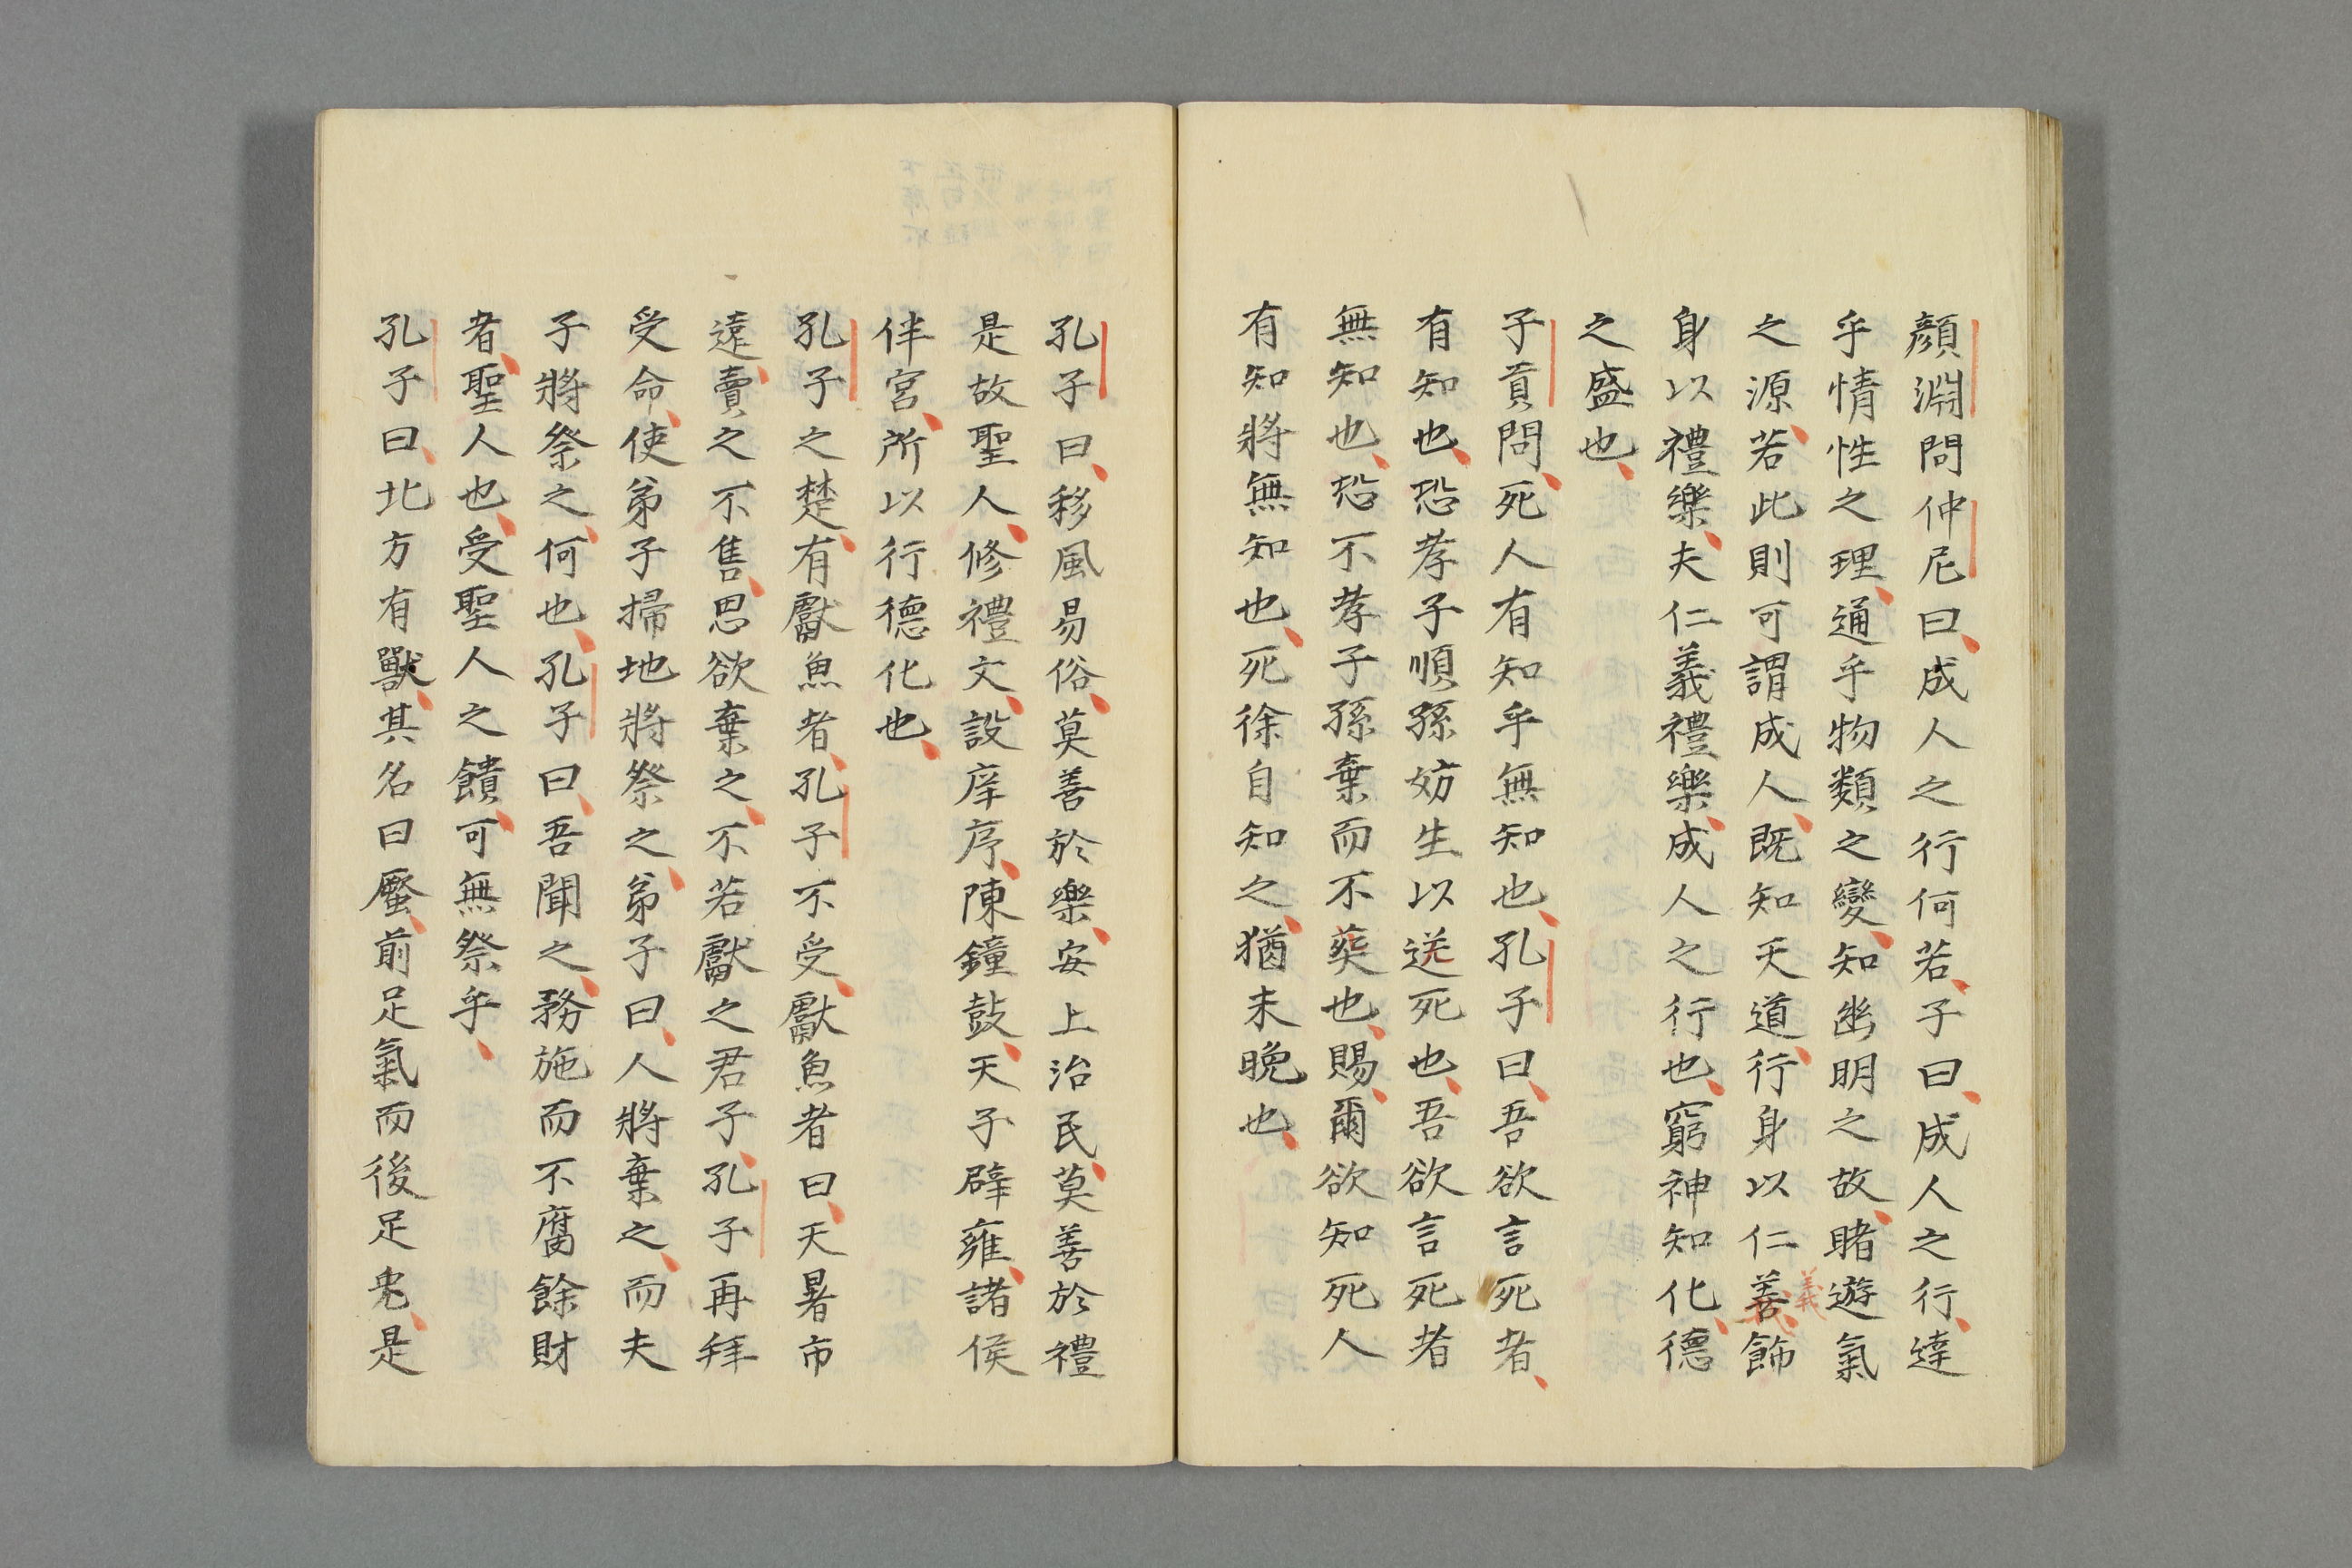 顔淵問仲尼曰、成人之行何若、子曰、成人之行、達
乎情性之理、通乎物類之變、知幽明之故、睹遊氣
之源、若此則可謂成人、既知天道、行身以仁善、飾
義
身以禮樂、夫仁義禮樂、成人之行也、窮神知化、德
之盛也、
子貢問、死人有知乎無知也、孔子曰、吾欲言死者、
有知也、恐孝子順孫妨生以送死也、吾欲言死者
無知也、恐不孝子孫棄而不葬也、賜、爾欲知死人
有知將無知也、死徐自知之、猶未晩也、
孔子曰、移風易俗、莫善於樂、安上治民、莫善於禮
是故聖人、修禮文、設庠序、陳鐘鼓、天子辟雍、諸侯
伴宮、所以行德化也、
孔子之楚、有獻魚者、孔子不受、獻魚者曰、天暑市
遠、賣之不售、思欲棄之、不若獻之君子、孔子再拜
受命、使弟子掃地將祭之、弟子曰、人將棄之、而夫
子將祭之、何也、孔子曰、吾聞之、務施而不腐餘財
者、聖人也、受聖人之饋、可無祭乎、
孔子曰、北方有獸、其名曰蟨、前足氣而後足兎、是